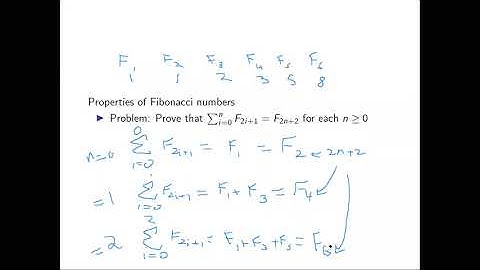 F₁ F₂ F₃ F₄ F₅ F₆
1 1 2 3 5 8
Properties of Fibonacci numbers
▶ Problem: Prove that ∑ⁿᵢ₌₀ F₂ᵢ₊₁ = F₂ₙ₊₂ for each n ≥ 0
n=0 ∑⁰ᵢ₌₀ F₂ᵢ₊₁ = F₁ = F₂ ← 2n+2
=1 ∑¹ᵢ₌₀ F₂ᵢ₊₁ = F₁ + F₃ = F₄
=2 ∑²ᵢ₌₀ F₂ᵢ₊₁ = F₁ + F₃ + F₅ = F₆